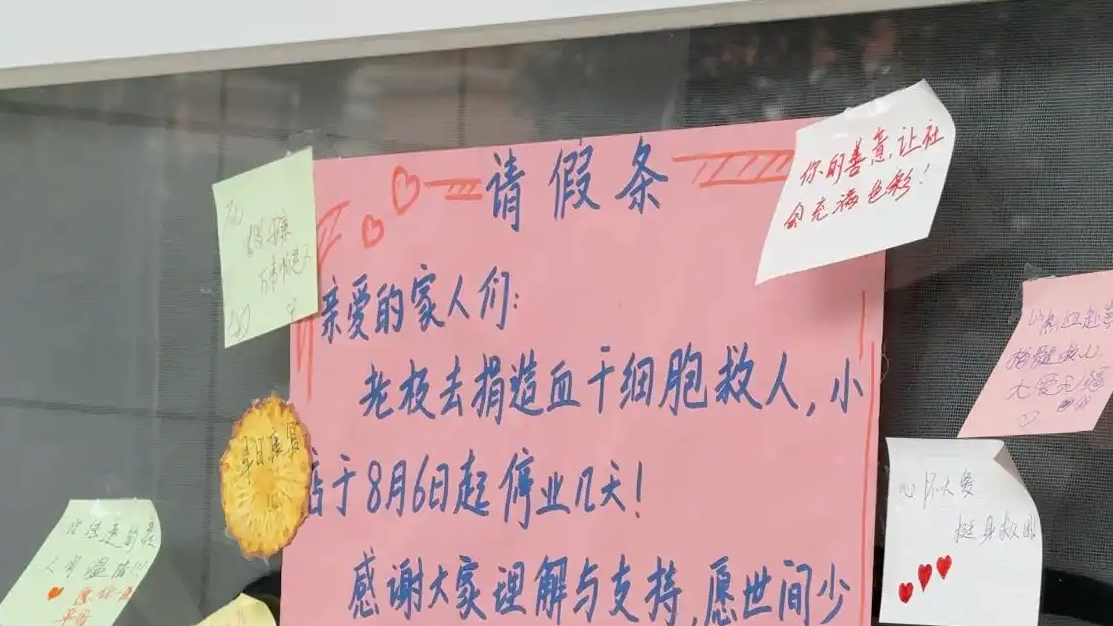 请假条
亲爱的家人们:
老板去捐造血干细胞救人,小
店于8月6日起停业几天!
感谢大家理解与支持,愿世间少
你的善意,让社
会充满色彩!
早日康复
心怀大爱
挺身救人
捐髓救人
大爱无疆